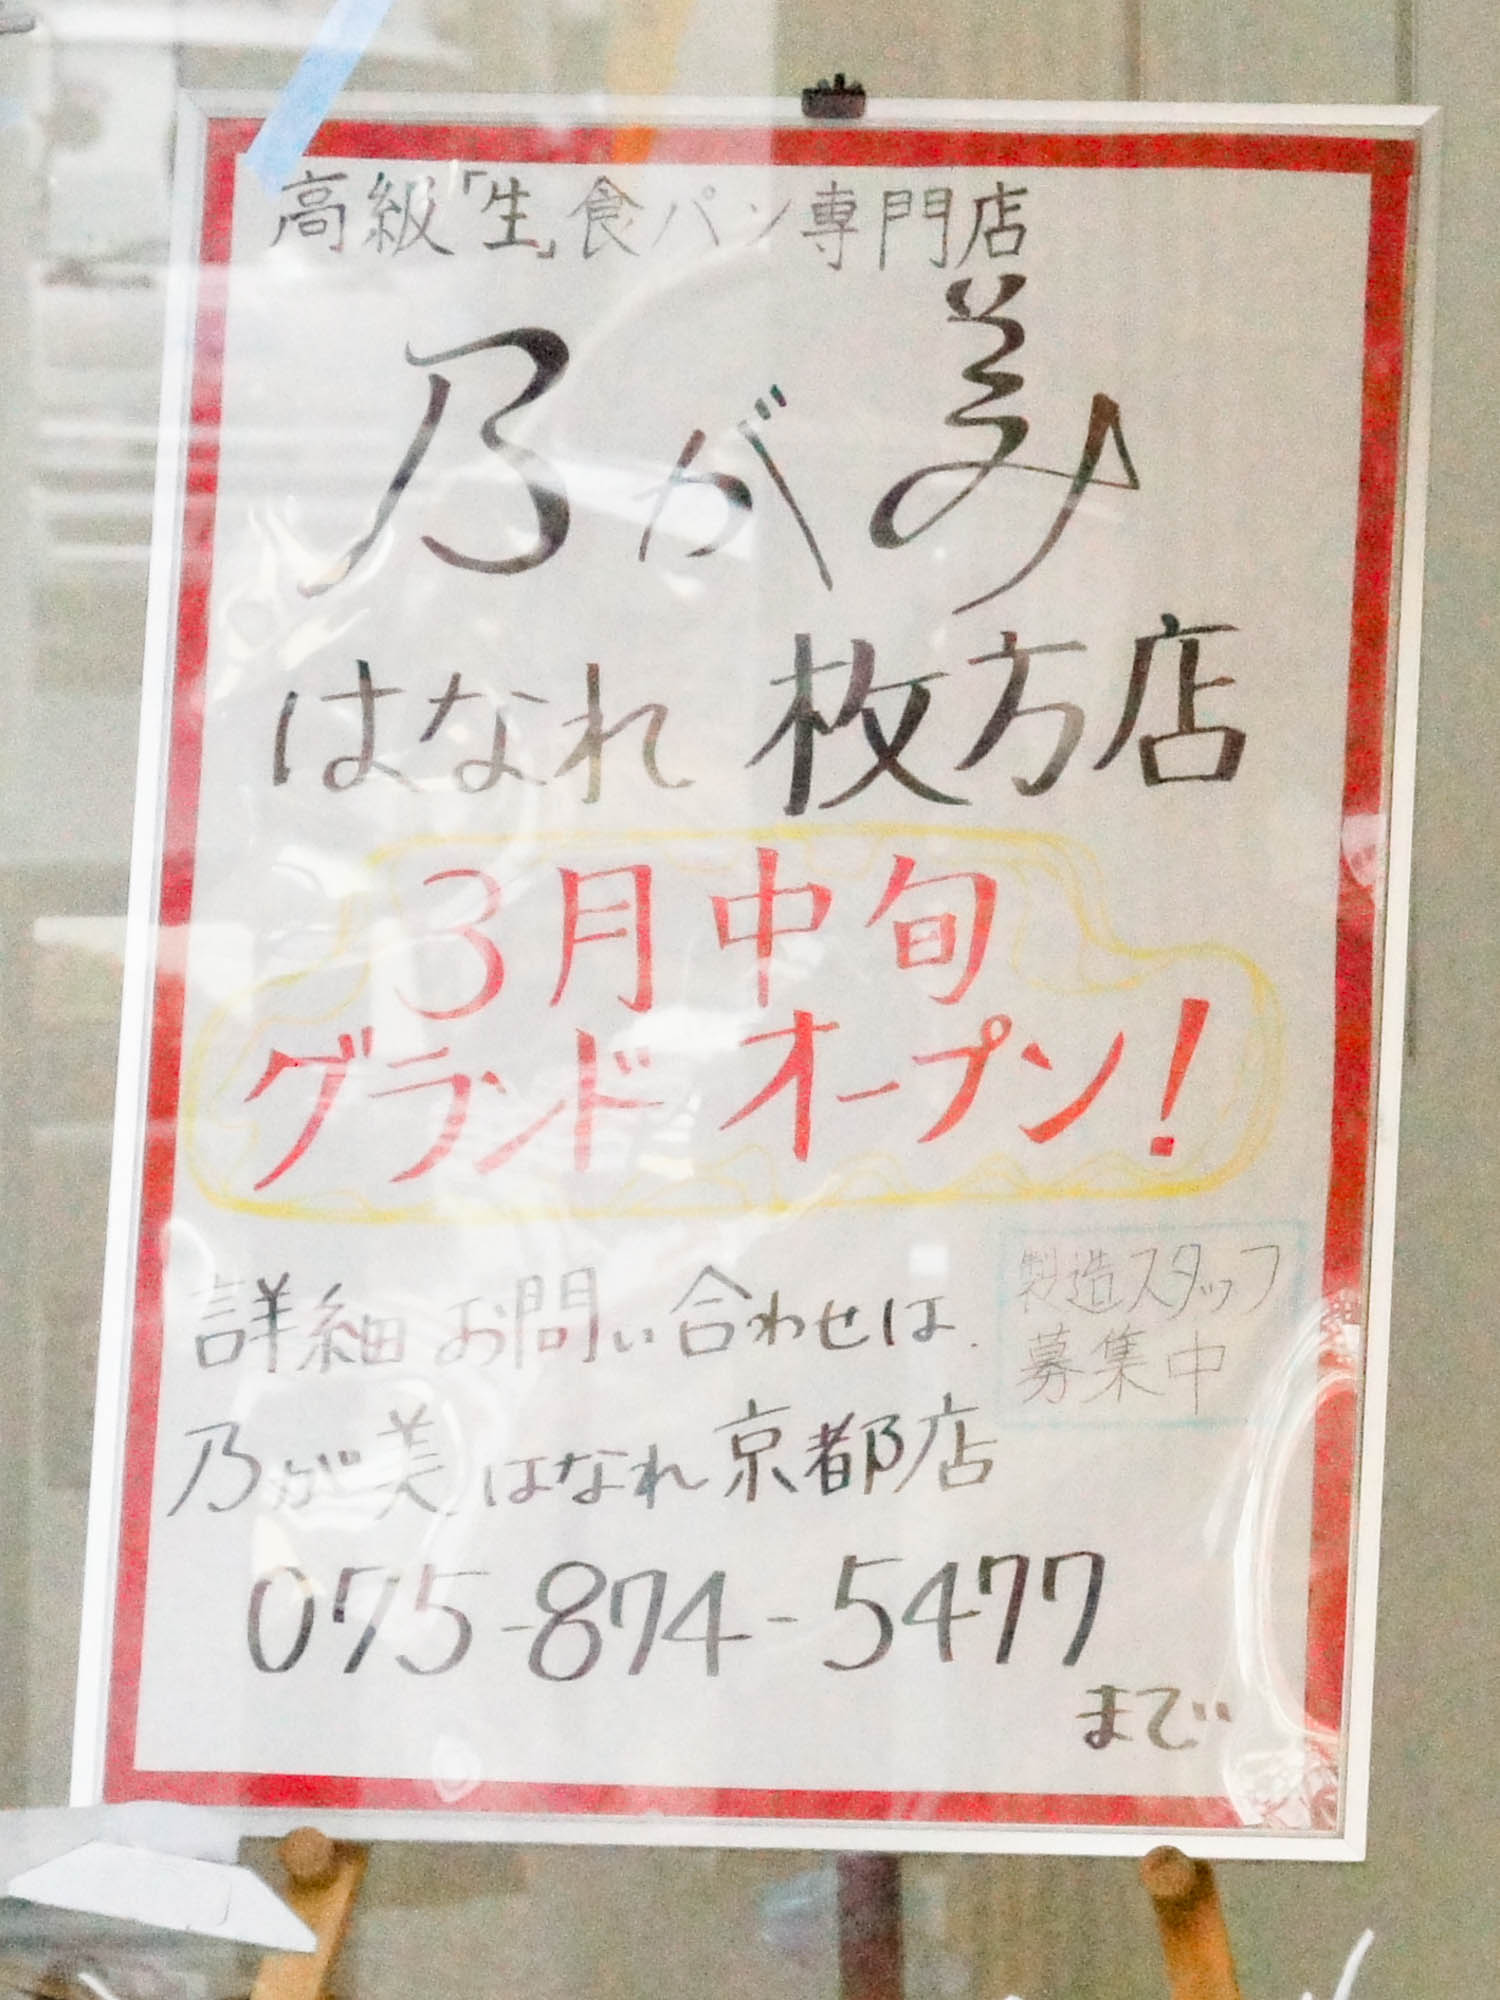 高級「生」食パン専門店
乃が美
はなれ 枚方店
3月中旬
グランドオープン!
製造スタッフ
募集中
詳細お問い合わせは、
乃が美はなれ京都店
075-874-5477
まで